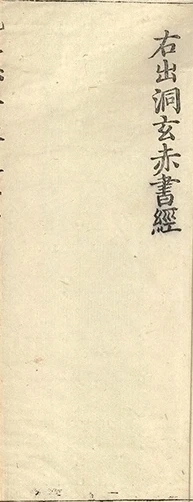 右出洞玄赤書經